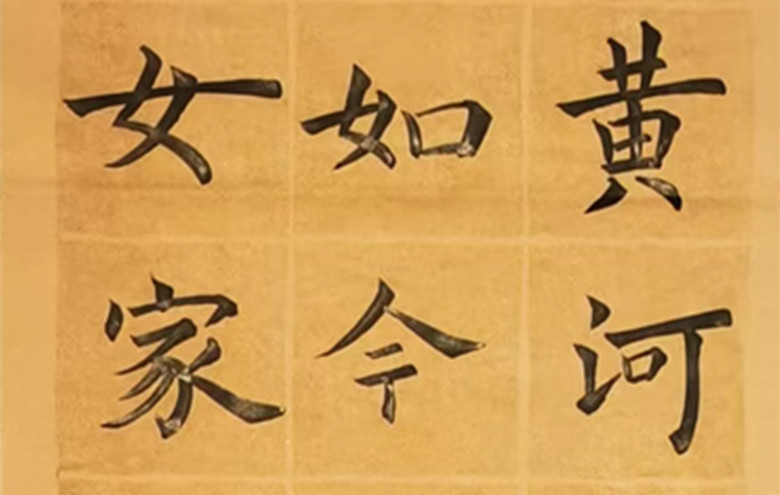 黄河
如今
女家